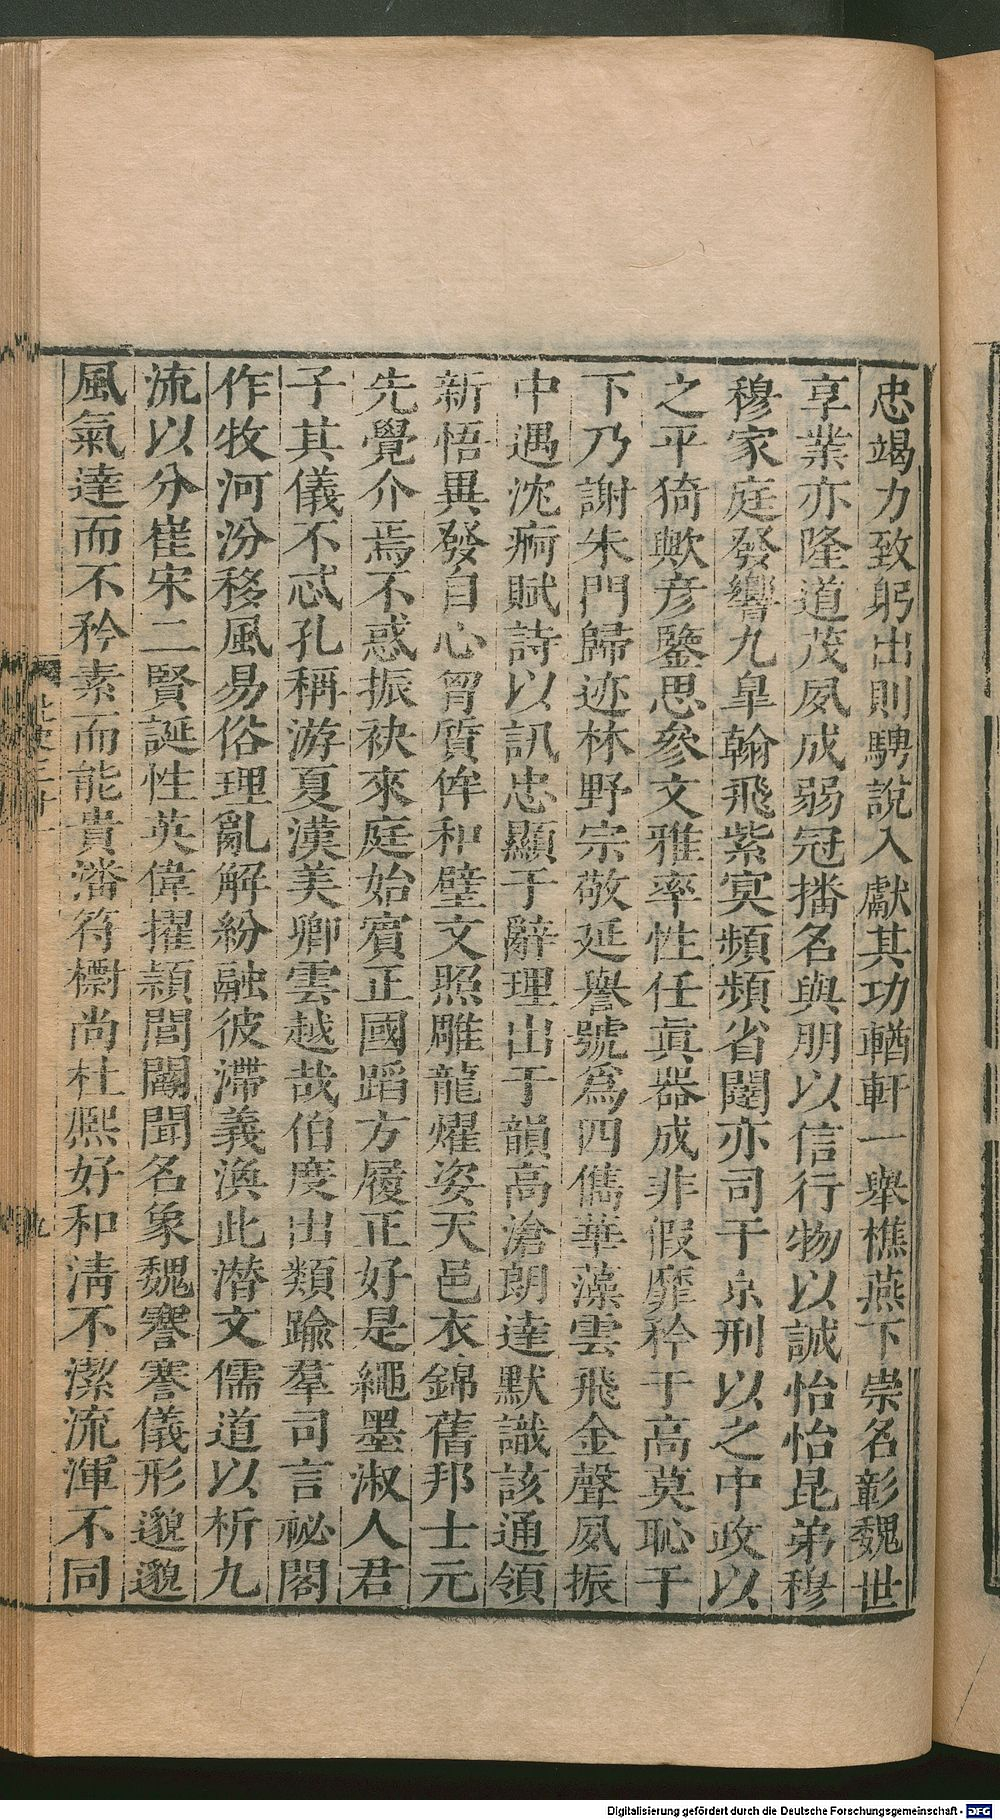 忠竭力致躬出則騁說入獻其功輶軒一舉橈燕下崇名彰魏世
享業亦隆道茂夙成弱冠播名與朋以信行物以誠怡怡昆弟穆
穆家庭發響九皐翰飛紫冥頻頻省闥亦司于京刑以之中政以
之平猗歟彥鑒思參文雅率性任眞器成非假靡矜于高莫恥于
下乃謝朱門歸迹林野宗敬延譽號爲四儁華藻雲飛金聲夙振
中遇沈痾賦詩以訊忠顯于辭理出于韻高滄朗達默識該通領
新悟異發自心胷質侔和璧文照雕龍燿姿天邑衣錦舊邦士元
先覺介焉不惑振袂來庭始賓正國蹈方履正好是繩墨淑人君
子其儀不忒孔稱游夏漢美卿雲越哉伯度出類踰羣司言祕閣
作牧河汾移風易俗理亂解紛融彼滯義渙此潛文儒道以析九
流以分崔宋二賢誕性英偉擢頴閭閻聞名象魏謇謇儀形邈邈
風氣達而不矜素而能貴潘符標尚杜熙好和淸不潔流渾不同
九
Digitalisierung gefördert durch die Deutsche Forschungsgemeinschaft - DFG